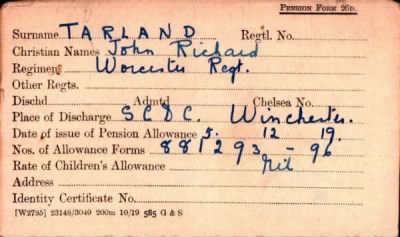 PENSION FORM 26D.
Surname TARLAND Regtl. No.
Christian Names John Richard
Regiment Worcester Regt.
Other Regts.
Dischd Admtd Chelsea No.
Place of Discharge S.C.D.C. Winchester.
Date of issue of Pension Allowance 5. 12 19.
Nos. of Allowance Forms 881293 - 96
Rate of Children's Allowance Nil
Address
Identity Certificate No.
[W2785] 23148/3049 200m 10/19 585 G & S